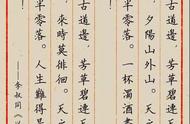 古道邊，芳草碧連天
夕陽山外山。天之
半零落。一杯濁酒
古道邊，芳草碧連天
來時莫徘徊。天之
半零落。人生難得是
——李叔同《